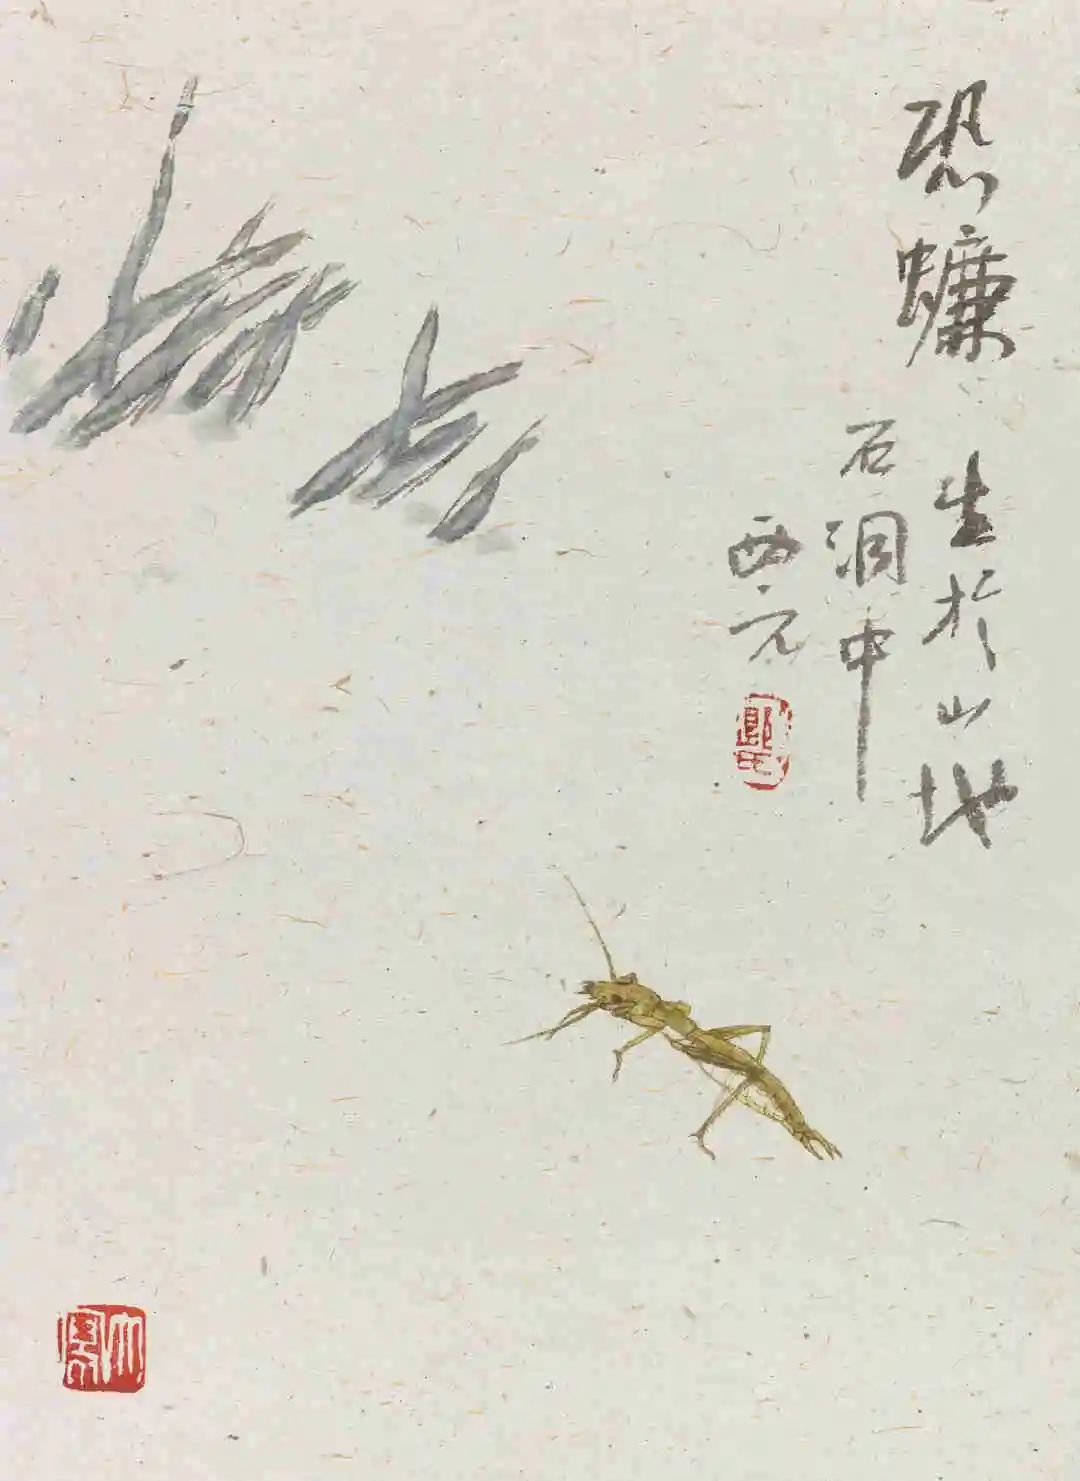 恐蠊
生於山地
石洞中
西元